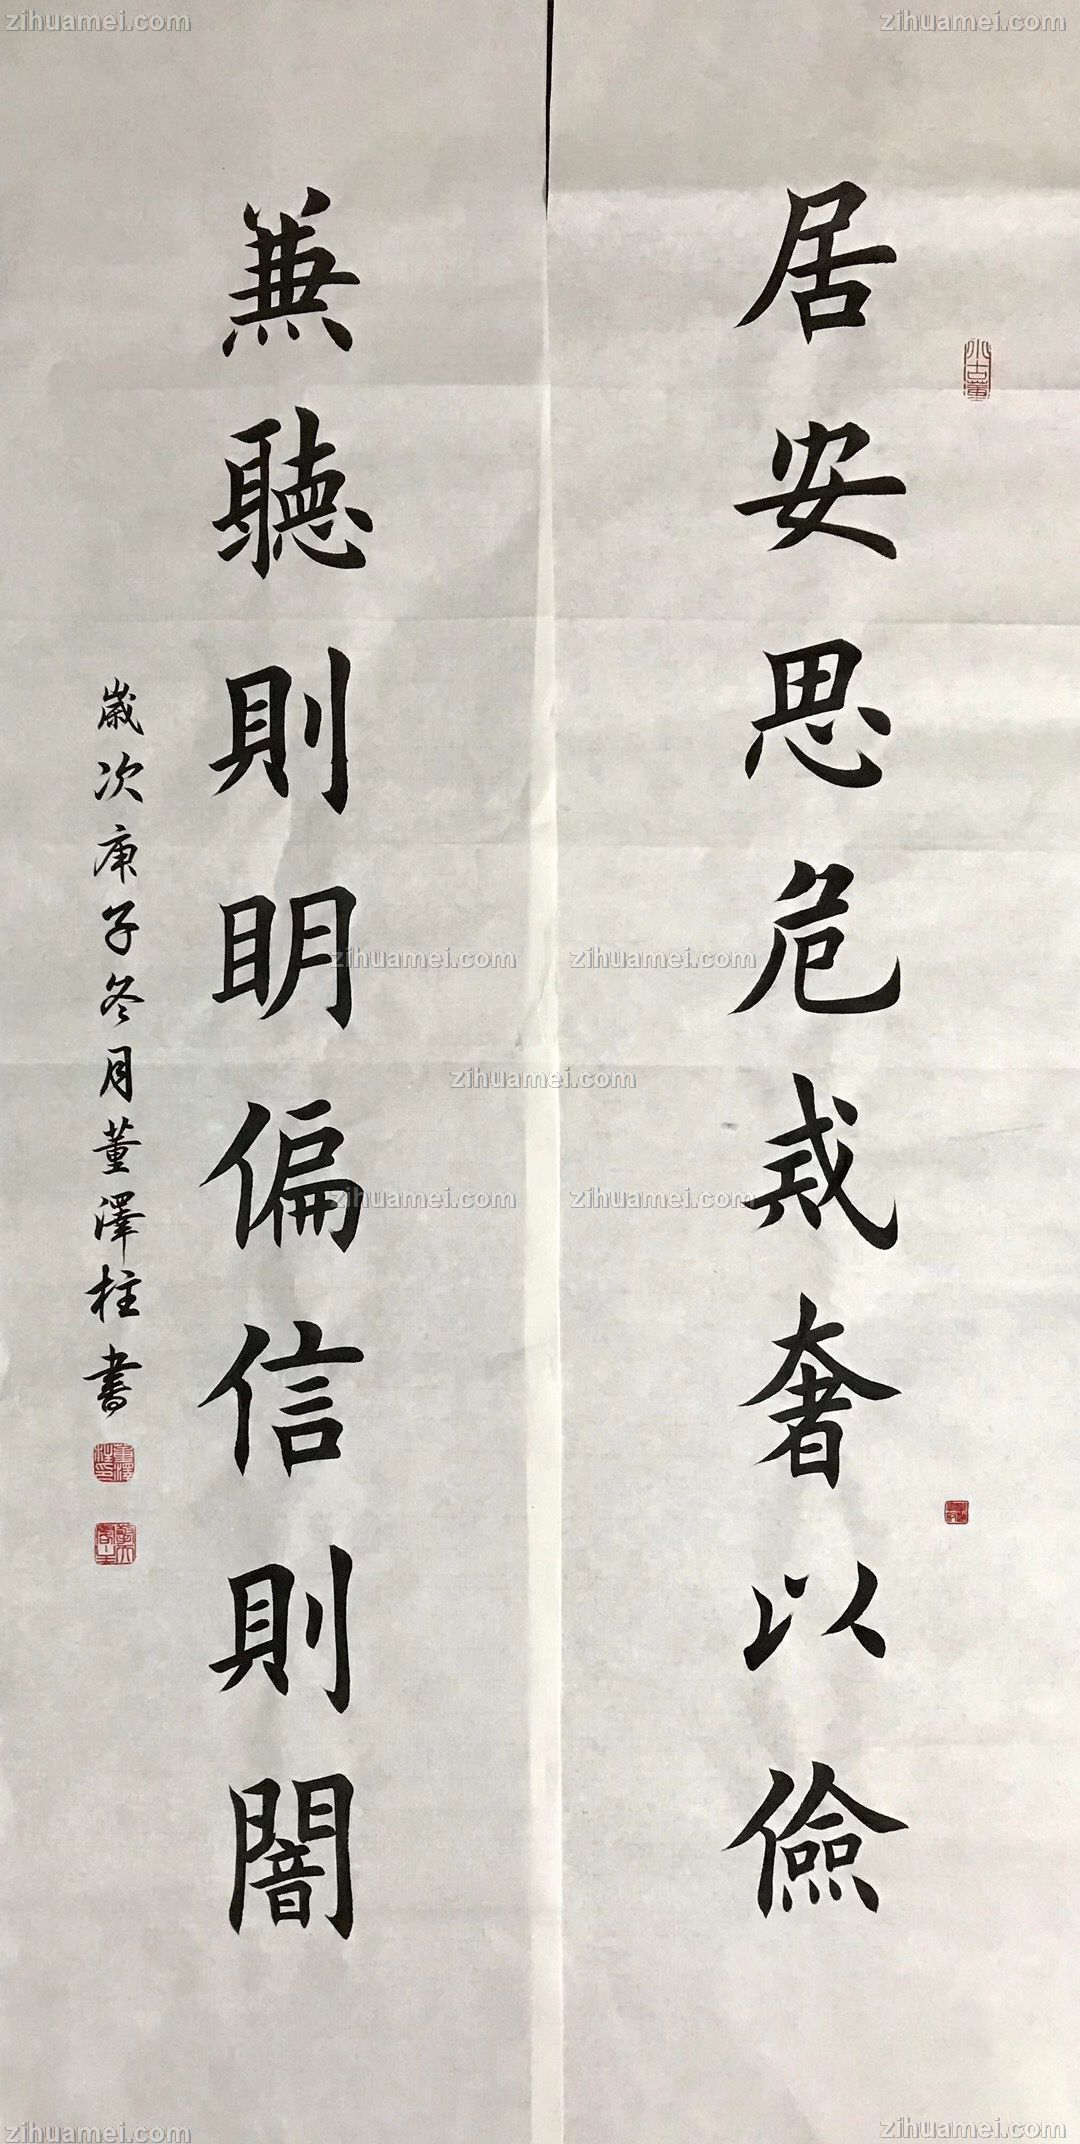 zihuamei.com zihuamei.com
居安思危戒奢以儉
兼聽則明偏信則闇
歲次庚子冬月董澤柱書
zihuamei.com zihuamei.com
zihuamei.com
zihuamei.com zihuamei.com
zihuamei.com zihuamei.com